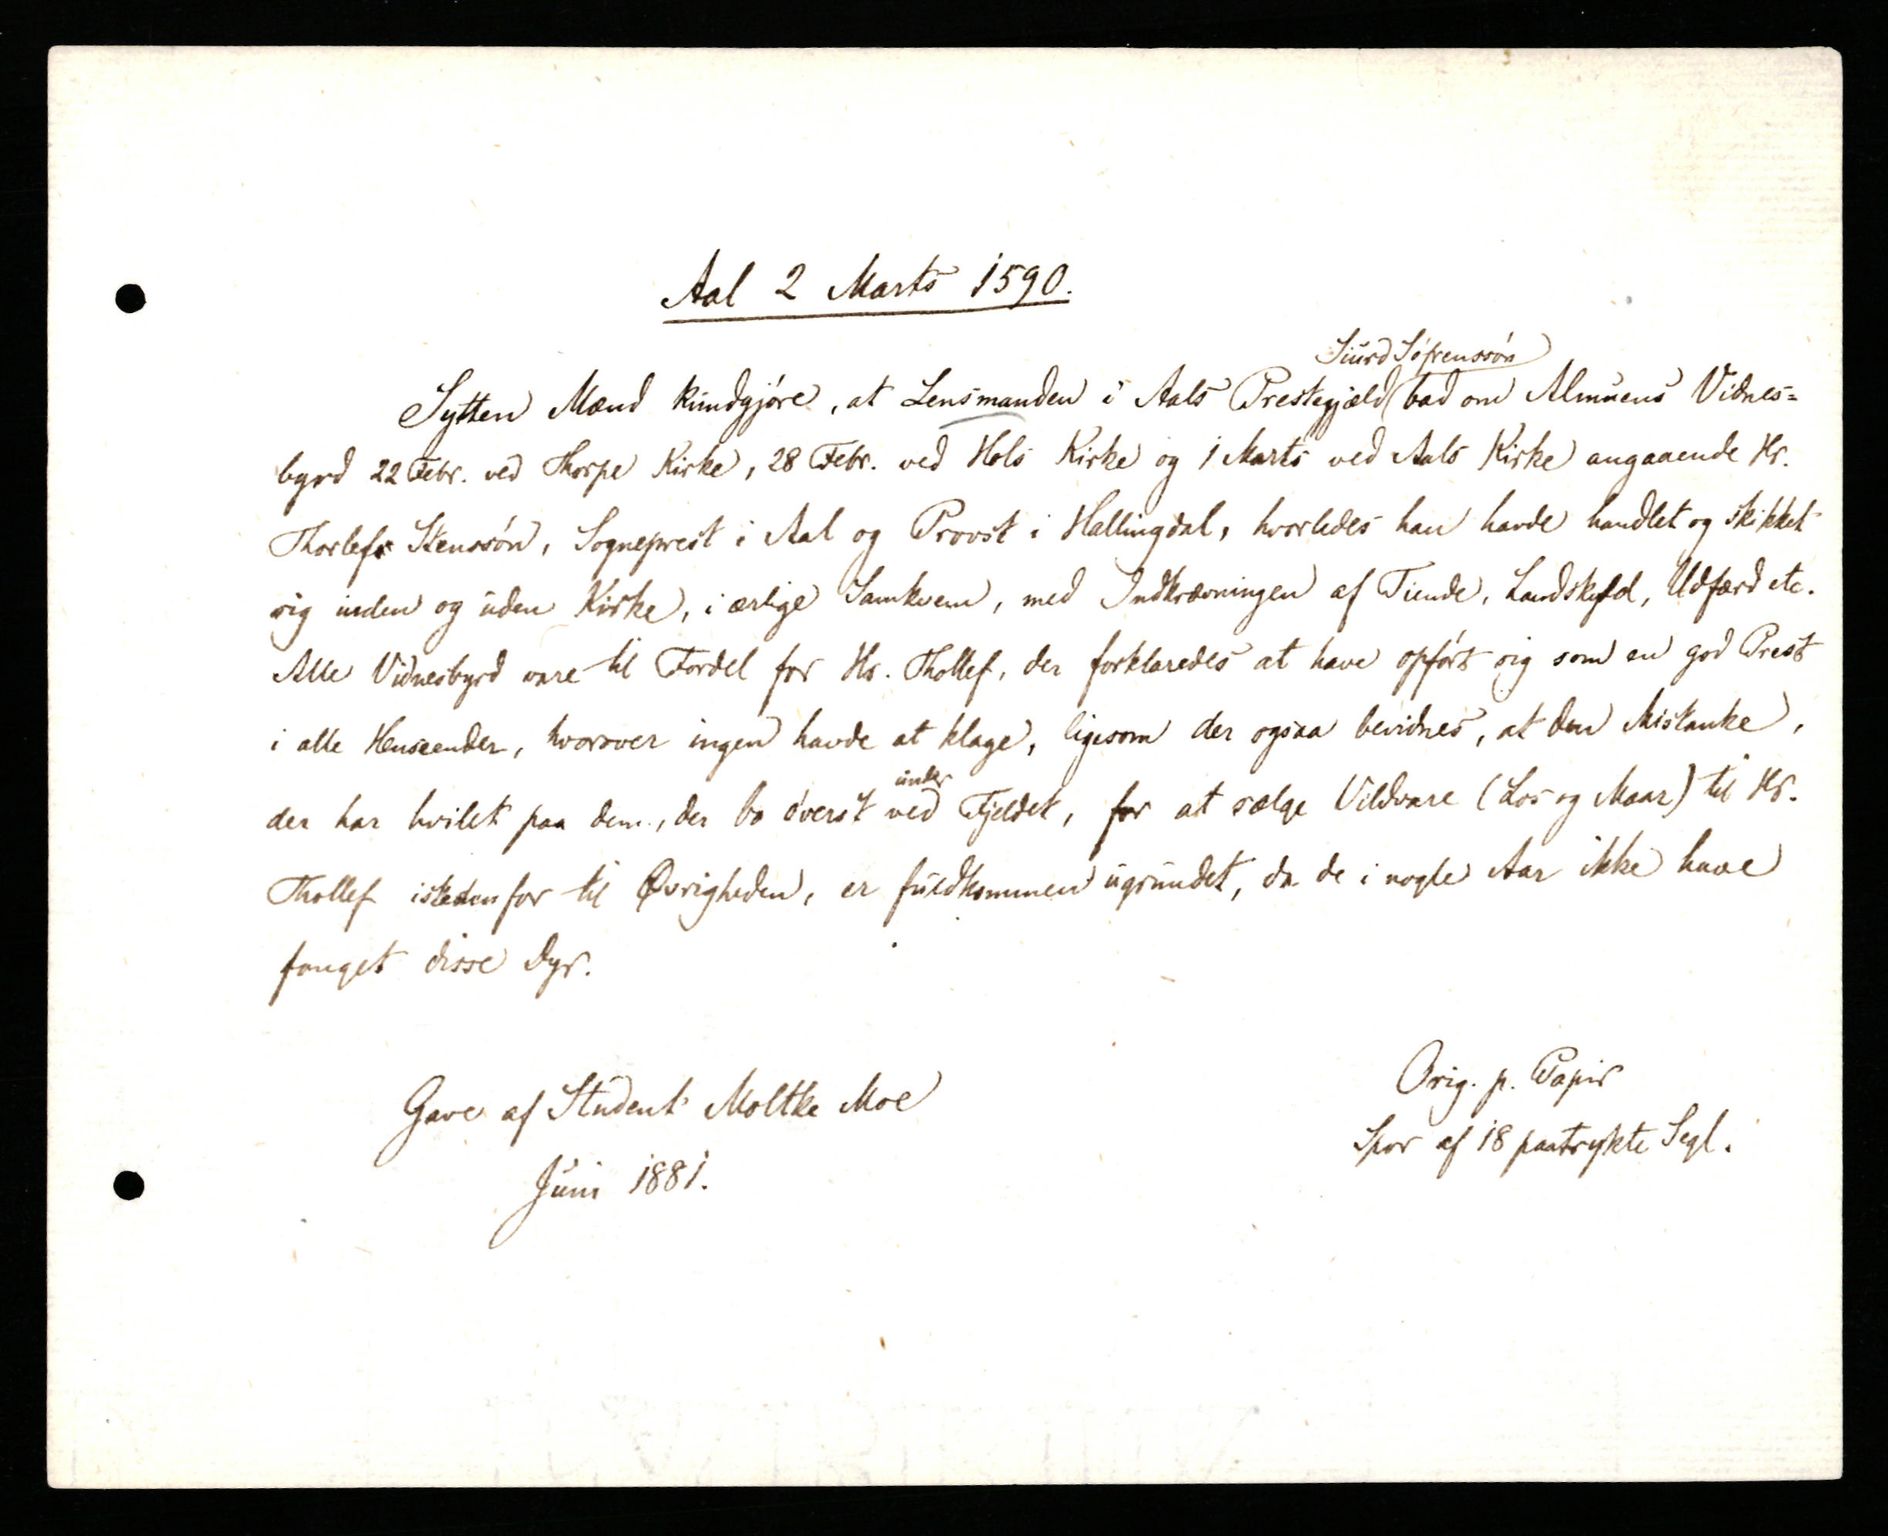 Aal 2 Marts 1590.
Siurd Söfrenssön
Sytten Mænd kundgjöre, at Lensmanden i Aals Prestegjæld bad om Almuens Vidnes=
byrd 22 Febr. ved Thorpe Kirke, 28 Febr. ved Hols Kirke og 1 Marts ved Aals Kirke angaaende Hr.
Thorlef Stenssön, Sogneprest i Aal og Provst i Hallingdal, hvorledes han havde handlet og skikket
sig inden og uden Kirke, i ærlige Samkvem, med Indkrævningen af Tiende, Landskyld, Udfærd etc.
Alle Vidnesbyrd vare til Fordel for Hr. Thollef, der forklaredes at have opfört sig som en god Prest
i alle Henseender, hvorover ingen havde at klage, ligesom der ogsaa bevidnes, at den Mistanke,
under
der har hvilet paa dem, der bo överst ved Fjeldet, for at sælge Vildvare (Los og Maar) til Hr.
Thollef istedenfor til Øvrigheden, er fuldkommen ugrundet, da de i nogle Aar ikke have
fanget disse Dyr.
Gave af Student Moltke Moe
Juni 1881.
Orig. p. Papir
Spor af 18 paatrykte Segl.